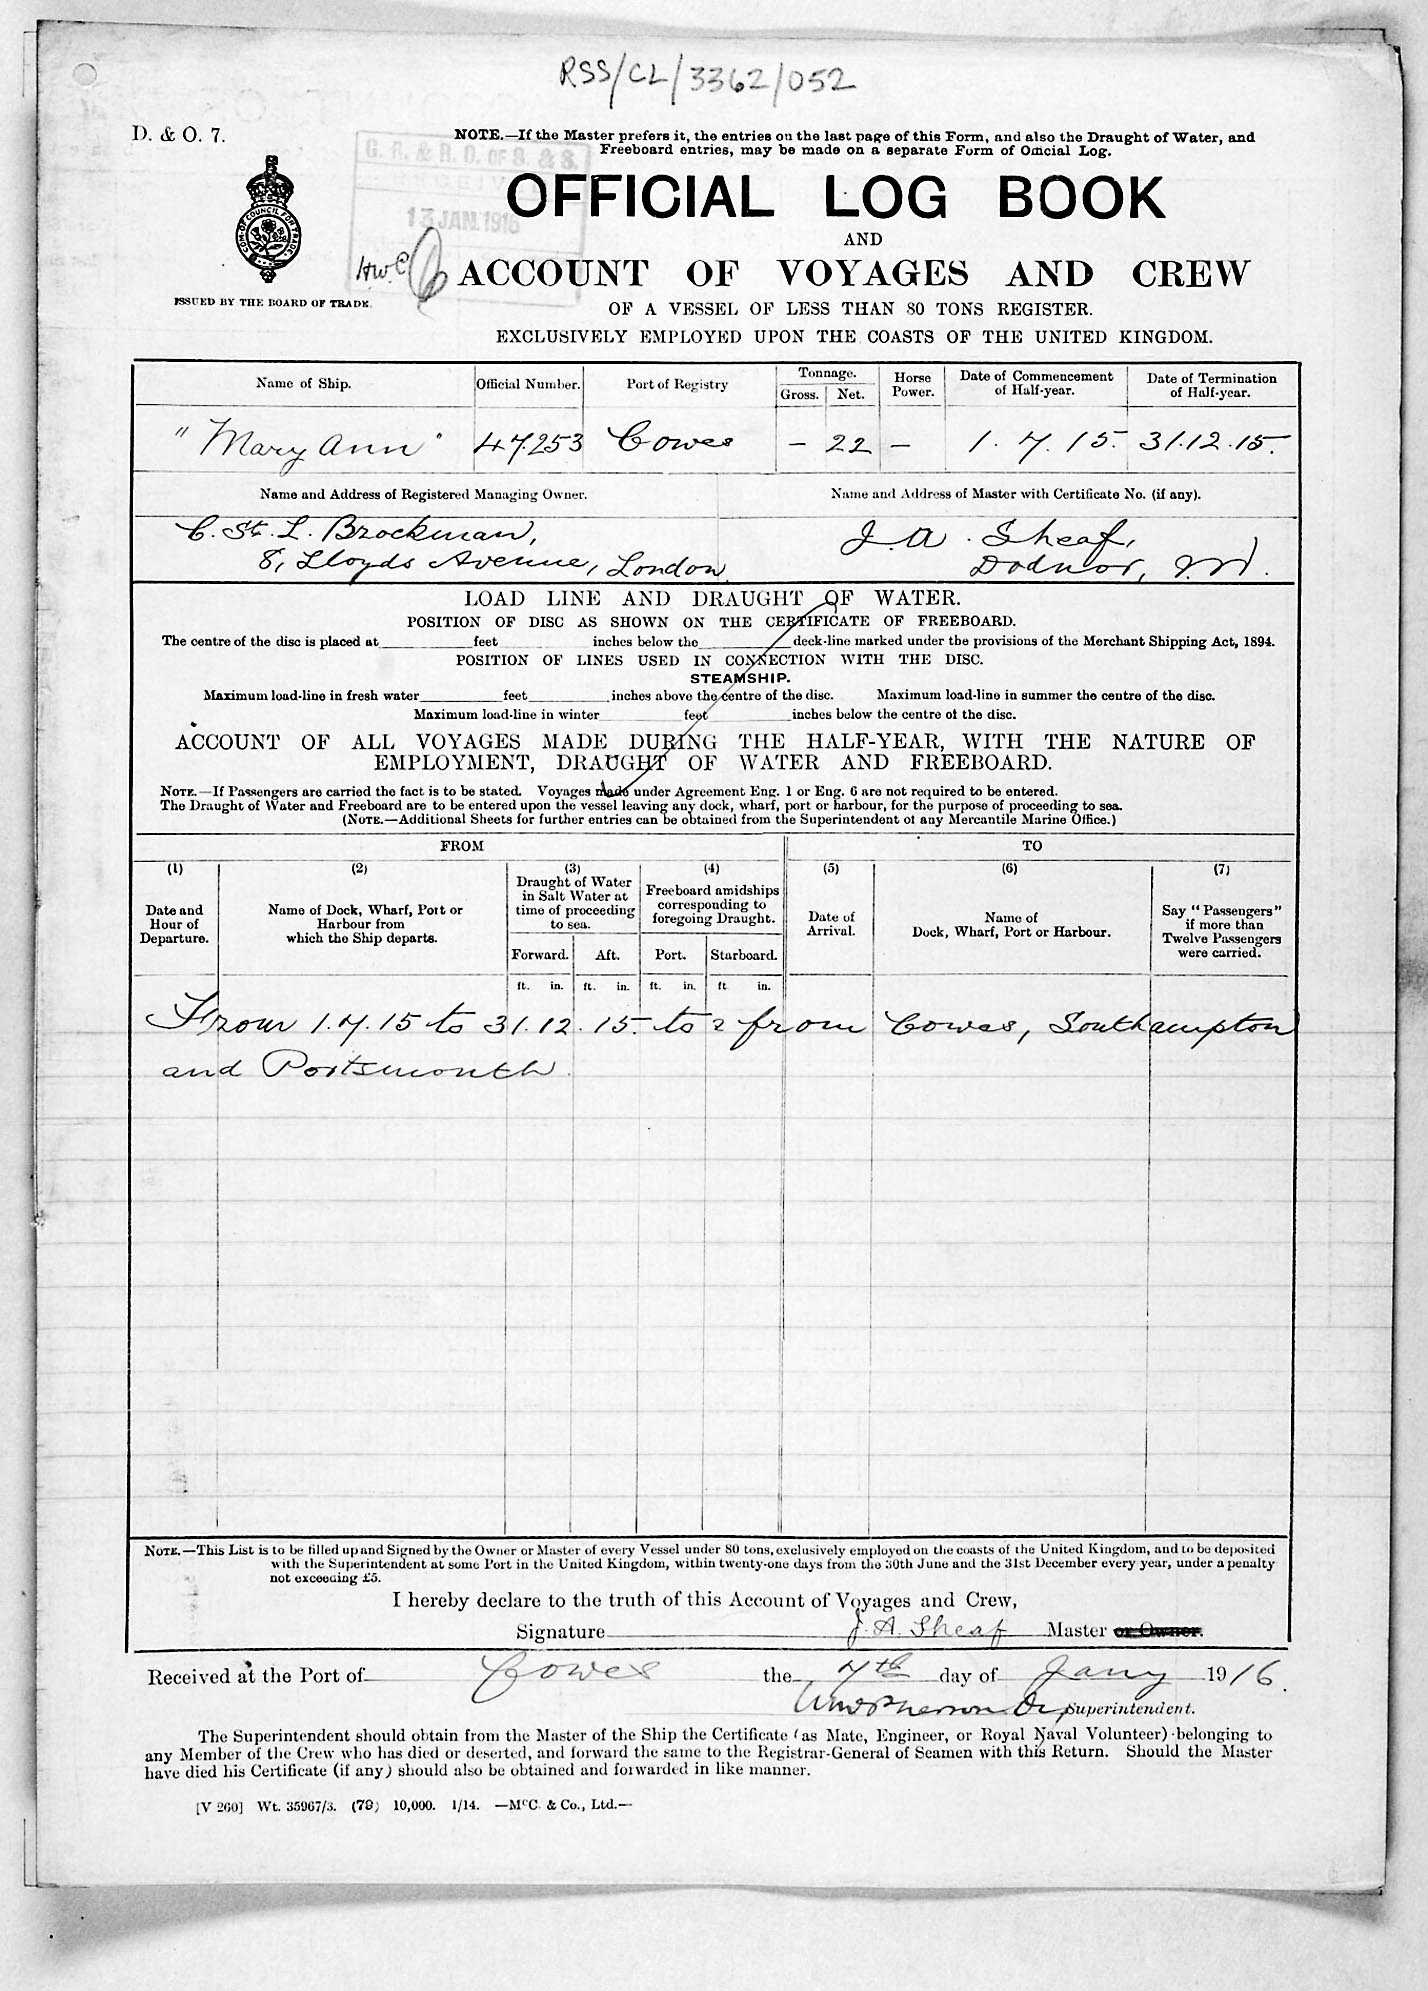 RSS/CL/3362/052
D. & O. 7.
NOTE.—If the Master prefers it, the entries on the last page of this Form, and also the Draught of Water, and
Freeboard entries, may be made on a separate Form of Official Log.
G. R. & R. O. OF S. & S.
13 JAN. 1916
OFFICIAL LOG BOOK
AND
H.W.C
ACCOUNT OF VOYAGES AND CREW
ISSUED BY THE BOARD OF TRADE.
OF A VESSEL OF LESS THAN 80 TONS REGISTER.
EXCLUSIVELY EMPLOYED UPON THE COASTS OF THE UNITED KINGDOM.
Name of Ship. Official Number. Port of Registry Tonnage. Gross. Net. Horse Power. Date of Commencement of Half-year. Date of Termination of Half-year.
"Mary Ann" 47.253 Cowes – 22 – 1. 7. 15. 31.12.15.
Name and Address of Registered Managing Owner. Name and Address of Master with Certificate No. (if any).
C. St. L. Brockman, J. A. Sheaf,
8, Lloyds Avenue, London Dodnor, I.W.
LOAD LINE AND DRAUGHT OF WATER.
POSITION OF DISC AS SHOWN ON THE CERTIFICATE OF FREEBOARD.
The centre of the disc is placed at feet inches below the deck-line marked under the provisions of the Merchant Shipping Act, 1894.
POSITION OF LINES USED IN CONNECTION WITH THE DISC.
STEAMSHIP.
Maximum load-line in fresh water feet inches above the centre of the disc. Maximum load-line in summer the centre of the disc.
Maximum load-line in winter feet inches below the centre of the disc.
ACCOUNT OF ALL VOYAGES MADE DURING THE HALF-YEAR, WITH THE NATURE OF
EMPLOYMENT, DRAUGHT OF WATER AND FREEBOARD.
NOTE.—If Passengers are carried the fact is to be stated. Voyages made under Agreement Eng. 1 or Eng. 6 are not required to be entered.
The Draught of Water and Freeboard are to be entered upon the vessel leaving any dock, wharf, port or harbour, for the purpose of proceeding to sea.
(NOTE.—Additional Sheets for further entries can be obtained from the Superintendent of any Mercantile Marine Office.)
FROM TO
(1) (2) (3) (4) (5) (6) (7)
Date and Hour of Departure.
Name of Dock, Wharf, Port or Harbour from which the Ship departs.
Draught of Water in Salt Water at time of proceeding to sea.
Freeboard amidships corresponding to foregoing Draught.
Date of Arrival.
Name of Dock, Wharf, Port or Harbour.
Say "Passengers" if more than Twelve Passengers were carried.
Forward. Aft. Port. Starboard.
ft. in. ft. in. ft. in. ft in.
From 1.7.15 to 31.12.15. to & from Cowes, Southampton
and Portsmouth.
NOTE.—This List is to be filled up and Signed by the Owner or Master of every Vessel under 80 tons, exclusively employed on the coasts of the United Kingdom, and to be deposited
with the Superintendent at some Port in the United Kingdom, within twenty-one days from the 30th June and the 31st December every year, under a penalty
not exceeding £5.
I hereby declare to the truth of this Account of Voyages and Crew,
Signature J. A. Sheaf Master or Owner.
Received at the Port of Cowes the 7th day of Jany 1916.
Superintendent.
The Superintendent should obtain from the Master of the Ship the Certificate (as Mate, Engineer, or Royal Naval Volunteer) belonging to
any Member of the Crew who has died or deserted, and forward the same to the Registrar-General of Seamen with this Return. Should the Master
have died his Certificate (if any) should also be obtained and forwarded in like manner.
[V 260] Wt. 35967/3. (79) 10,000. 1/14. —McC. & Co., Ltd.—